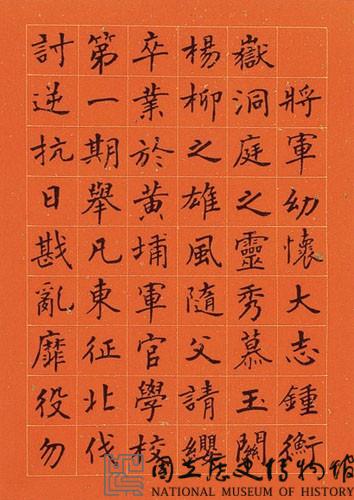 將軍幼懷大志鍾衡
嶽洞庭之靈秀慕玉關
楊柳之雄風隨父請纓
卒業於黃埔軍官學校
第一期舉凡東征北伐
討逆抗日戡亂靡役勿
國立歷史博物館
NATIONAL MUSEUM OF HISTORY